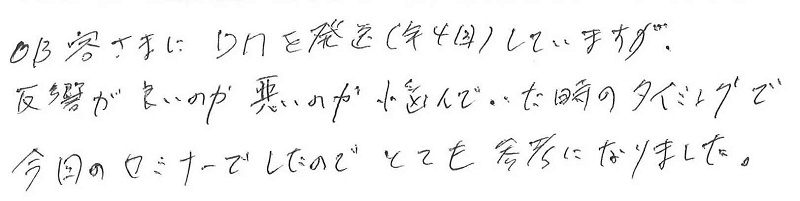 OB客さまにDMを発送(年4回)していますが、
反響が良いのか悪いのか悩んでいた時のタイミングで
今回のセミナーでしたのでとても参考になりました。